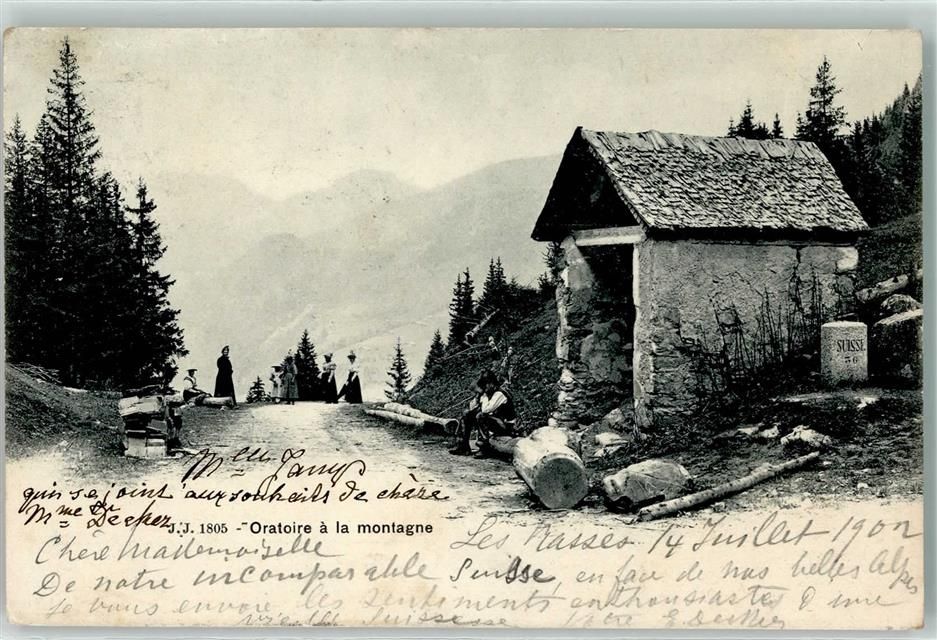 SUISSE
56
Melle Jamy
qui se joint aux souhaits de chère
Mme Decker
J.J. 1805 - Oratoire à la montagne
Les Rasses 14 Juillet 1902
Chère Mademoiselle
De notre incomparable Suisse, en face de nos belles Alpes
je vous envoie les sentiments enthousiastes d'une
vieille Suissesse